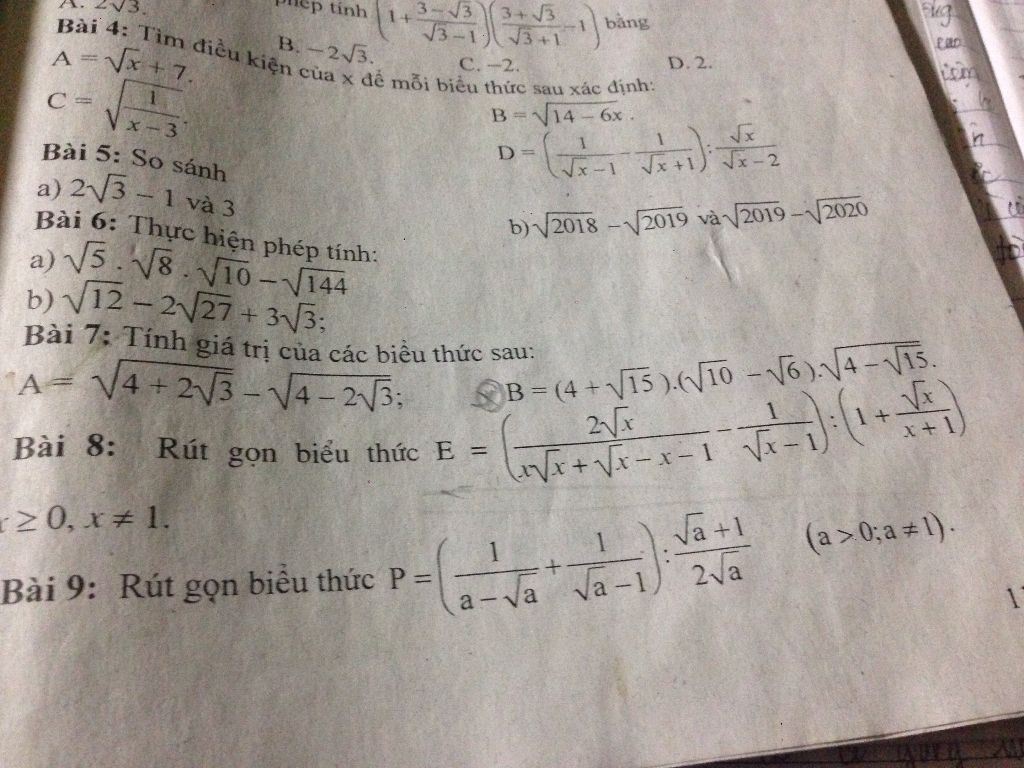 A. 2√3.
phép tính (1 + (3 − √3)/(√3 − 1))((3 + √3)/(√3 + 1) − 1) bằng
B. −2√3. C. −2. D. 2.
Bài 4: Tìm điều kiện của x để mỗi biểu thức sau xác định:
A = √x + 7. B = √(14 − 6x).
C = √(1/(x − 3)). D = (1/(√x − 1) − 1/(√x + 1)) : √x/(√x − 2)
Bài 5: So sánh
a) 2√3 − 1 và 3 b) √2018 − √2019 và √2019 − √2020
Bài 6: Thực hiện phép tính:
a) √5 . √8 . √10 − √144
b) √12 − 2√27 + 3√3;
Bài 7: Tính giá trị của các biểu thức sau:
A = √(4 + 2√3) − √(4 − 2√3); B = (4 + √15).(√10 − √6).√(4 − √15).
Bài 8: Rút gọn biểu thức E = (2√x/(x√x + √x − x − 1) − 1/(√x − 1)) : (1 + √x/(x + 1))
x ≥ 0, x ≠ 1.
Bài 9: Rút gọn biểu thức P = (1/(a − √a) + 1/(√a − 1)) : (√a + 1)/(2√a) (a > 0; a ≠ 1).